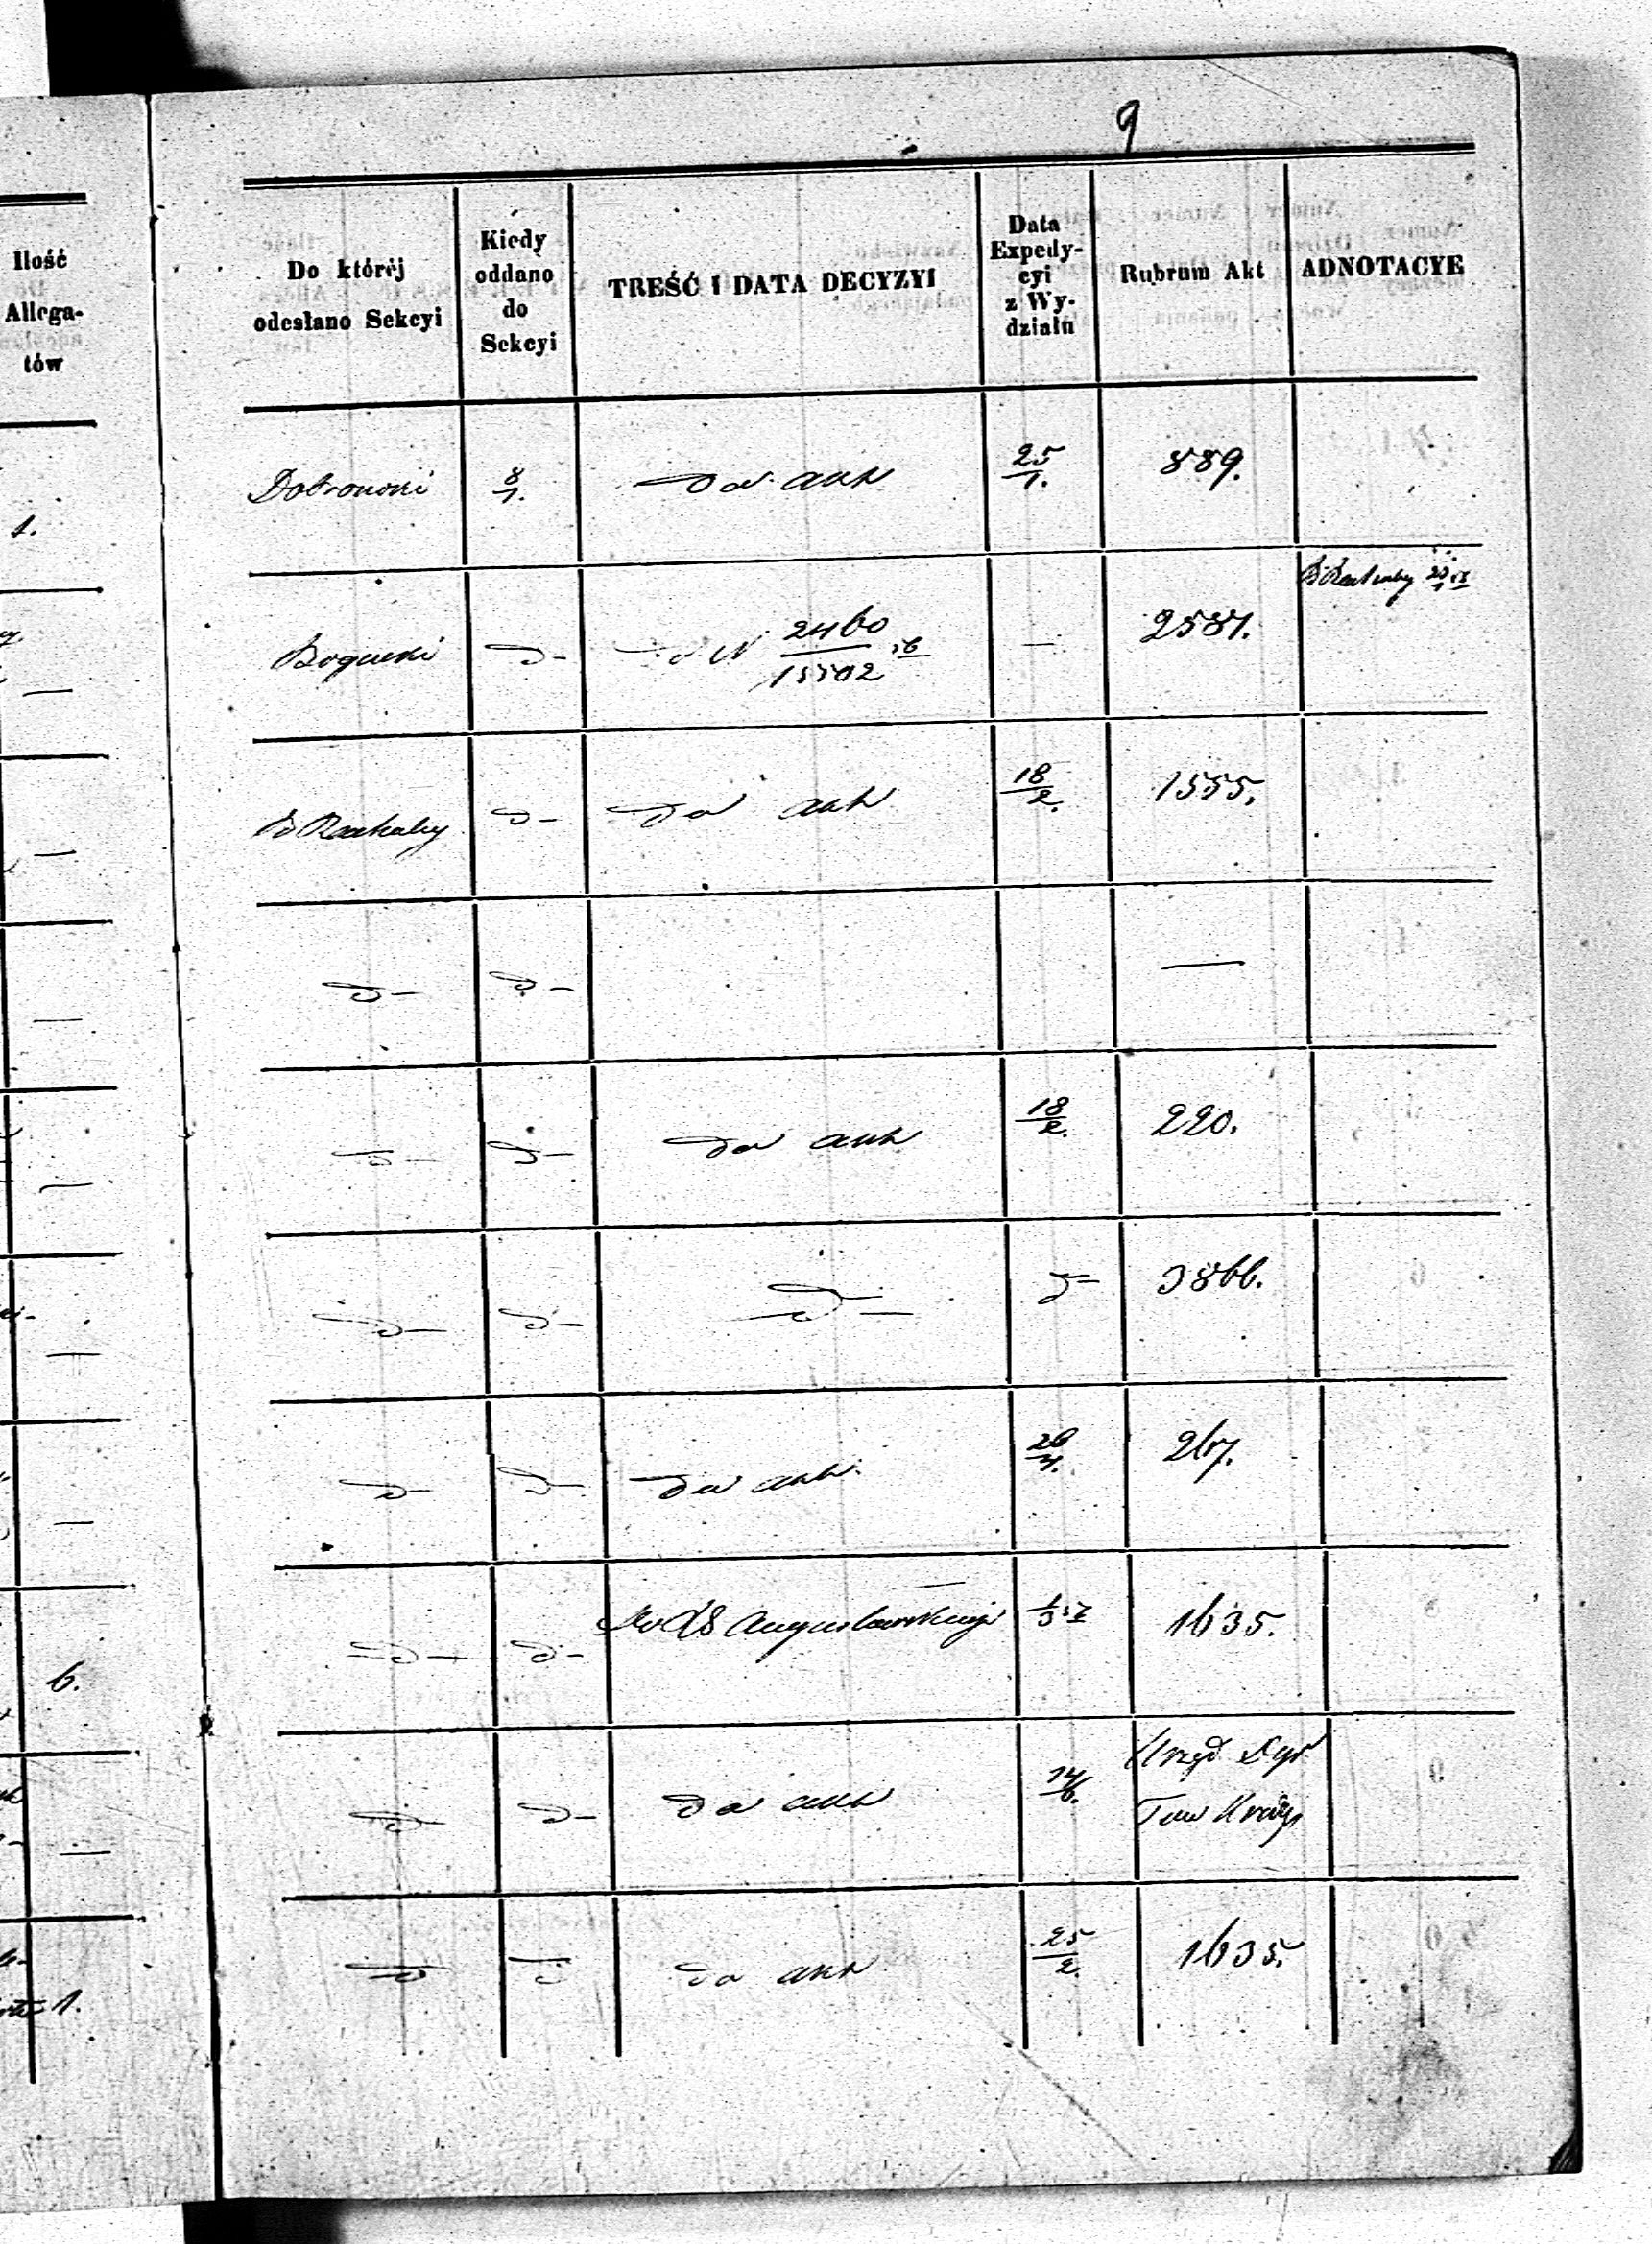 9
Ilość
Allega-
tów
Do któréj
odesłano Sekcyi
Kiedy
oddano
do
Sekcyi
TREŚĆ I DATA DECYZYI
Data
Expedy-
cyi
z Wy-
działu
Rubrum Akt
ADNOTACYE
1.
8/1. do akt 25/1. 889.
Bogucki d- do N 2460/15502 — 2587.
— d- do akt 18/2. 1555.
— d- d- —
— d- d- do akt 18/2. 220.
— d- d- d- d- 3866.
— d- d- do akt. 26/4. 267.
6. d- d- Augustowskiej 1635.
— d- d- do akt 14/6. Urząd
Tow
1. d- d- do akt 25/2. 1635.